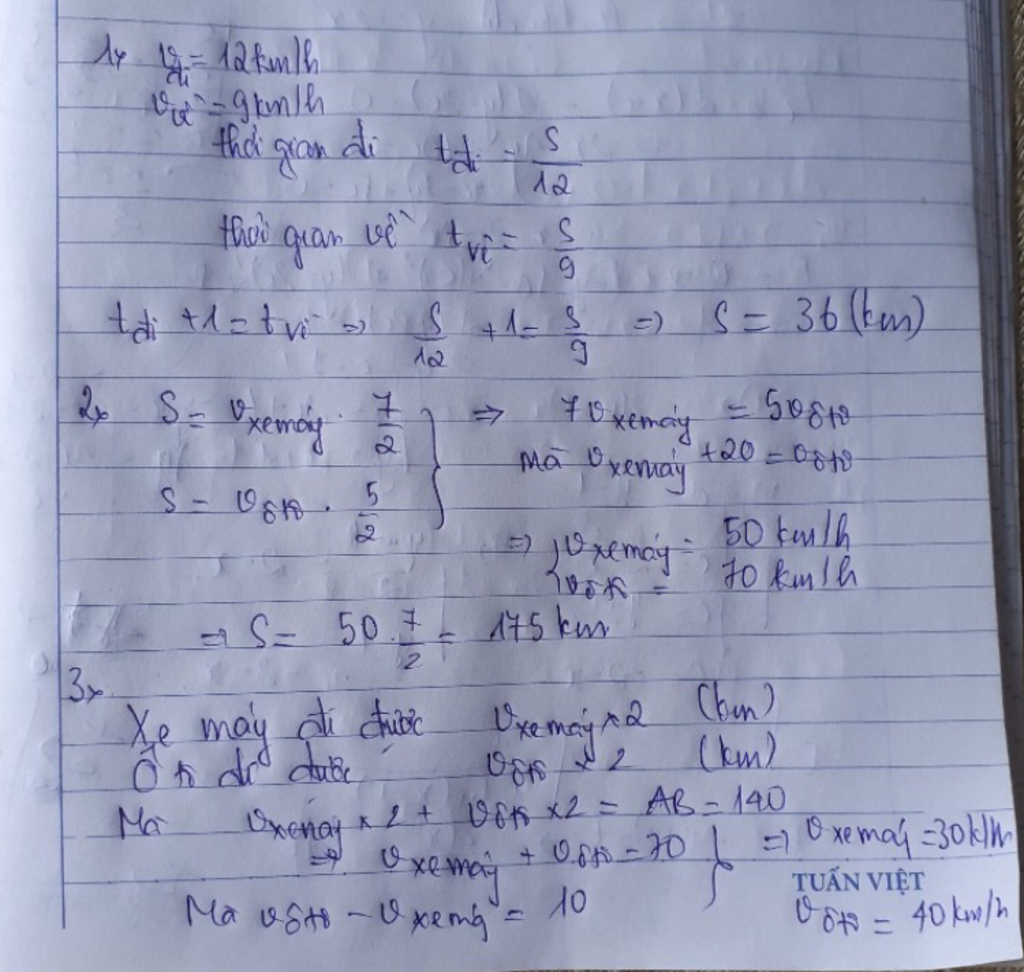 1, v đi = 12 km/h
v về = 9 km/h
thời gian đi t đi = S/12
thời gian về t về = S/9
t đi + 1 = t về => S/12 + 1 = S/9 => S = 36 (km)
2, S = v xe máy . 7/2 } => 7 v xe máy = 5 v ô tô
Mà v xe máy + 20 = v ô tô
S = v ô tô . 5/2
=> { v xe máy = 50 km/h
v ô tô = 70 km/h
=> S = 50 . 7/2 = 175 km
3,
Xe máy đi được v xe máy x 2 (km)
Ô tô đi được v ô tô x 2 (km)
Mà v xe máy x 2 + v ô tô x 2 = AB = 140
=> v xe máy + v ô tô = 70 } => v xe máy = 30 km/h
TUẤN VIỆT
Mà v ô tô - v xe máy = 10 v ô tô = 40 km/h